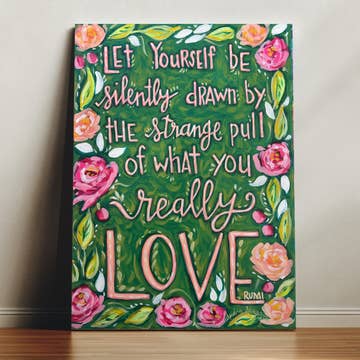 LET YOURSELF BE
silently drawn by
THE strange pull
OF WHAT YOU
really
LOVE
RUMI